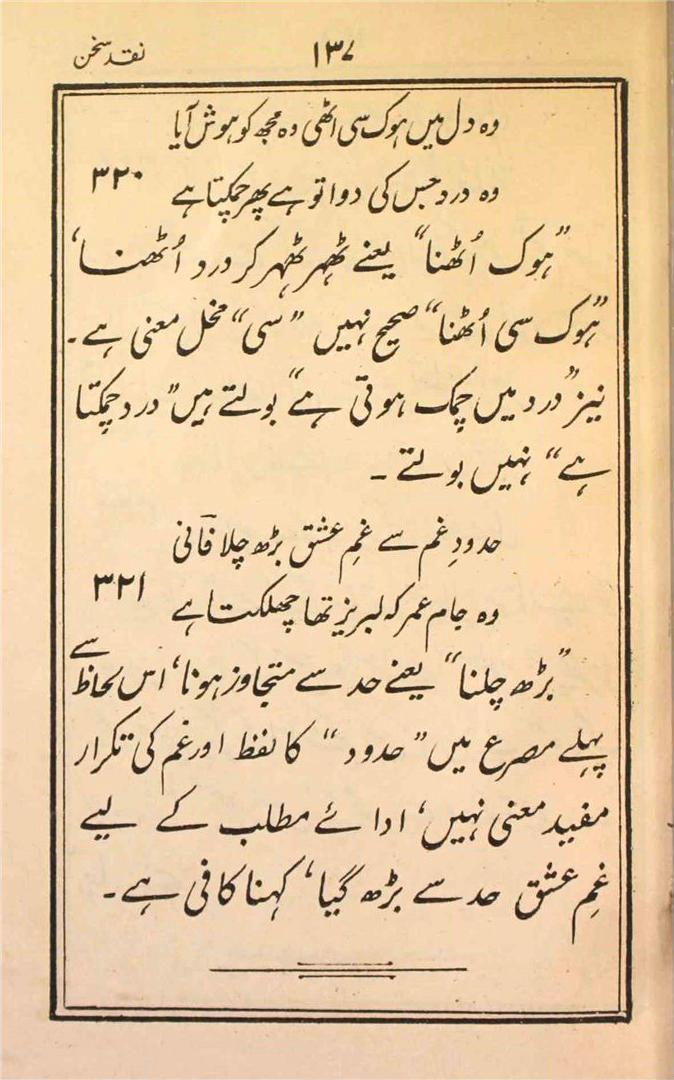 نقد سخن
۱۳۷
وہ دل میں ہوک سی اٹھی وہ مجھ کو ہوش آیا
۳۲۰
وہ درد جس کی دوا تو ہے پھر چمکتا ہے
”ہوک اُٹھنا“ یعنے ٹھہر ٹھہر کر درد اُٹھنا،
”ہوک سی اُٹھنا“ صحیح نہیں ”سی“ مخل معنی ہے۔
نیز ”درد میں چمک ہوتی ہے“ بولتے ہیں ”درد چمکتا
ہے“ نہیں بولتے ۔
حدودِ غم سے غمِ عشق بڑھ چلا فانؔی
۳۲۱
وہ جام عمر کہ لبریز تھا چھلکتا ہے
”بڑھ چلنا“ یعنے حد سے متجاوز ہونا، اس لحاظ سے
پہلے مصرع میں ”حدود“ کا لفظ اور غم کی تکرار
مفید معنی نہیں، ادائے مطلب کے لیے
غمِ عشق حد سے بڑھ گیا، کہنا کافی ہے۔